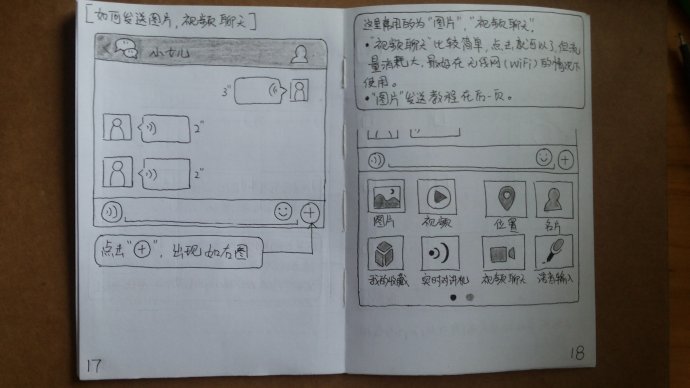 [如何发送图片,视频聊天]
小女儿
3"
2"
2"
点击"⊕",出现如右图
17
这里常用的为"图片","视频聊天",
·"视频聊天"比较简单,点击就可以了,但流
量消耗大,最好在无线网(WiFi)的情况下
使用。
·"图片"发送教程在后一页。
图片 视频 位置 名片
我的收藏 实时对讲机 视频聊天 语音输入
18